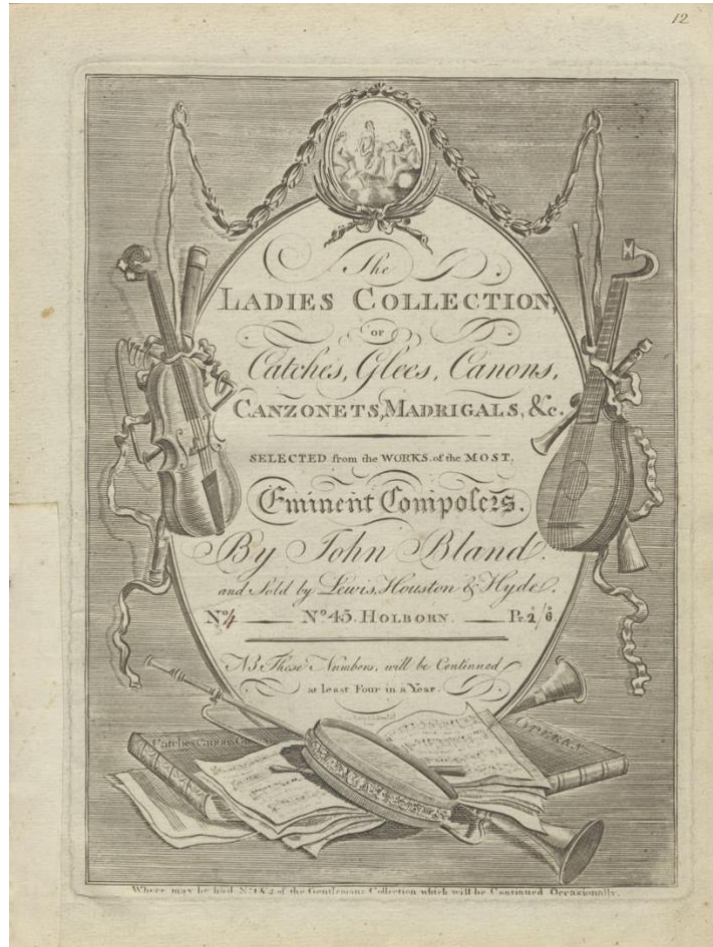 12
The
LADIES COLLECTION,
OF
Catches, Glees, Canons,
CANZONETS, MADRIGALS, &c.
SELECTED from the WORKS of the MOST,
Eminent Composers.
By John Bland.
and Sold by Lewis, Houston & Hyde.
No. 4 No. 45. HOLBORN. Pr. 2/6
NB These Numbers, will be Continued
at least Four in a Year.
Catches Canons
Where may be had No. 1 & 2 of the Gentlemans Collection which will be Continued Occasionally.